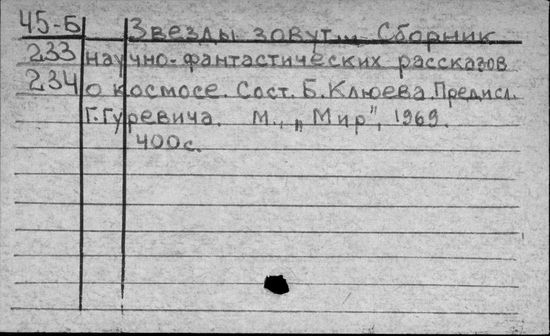 45-Б Звезды зовут... Сборник
233 научно-фантастических рассказов
234 о космосе. Сост. Б. Клюева. Предисл.
Г. Гуревича. М., „Мир", 1969.
400с.